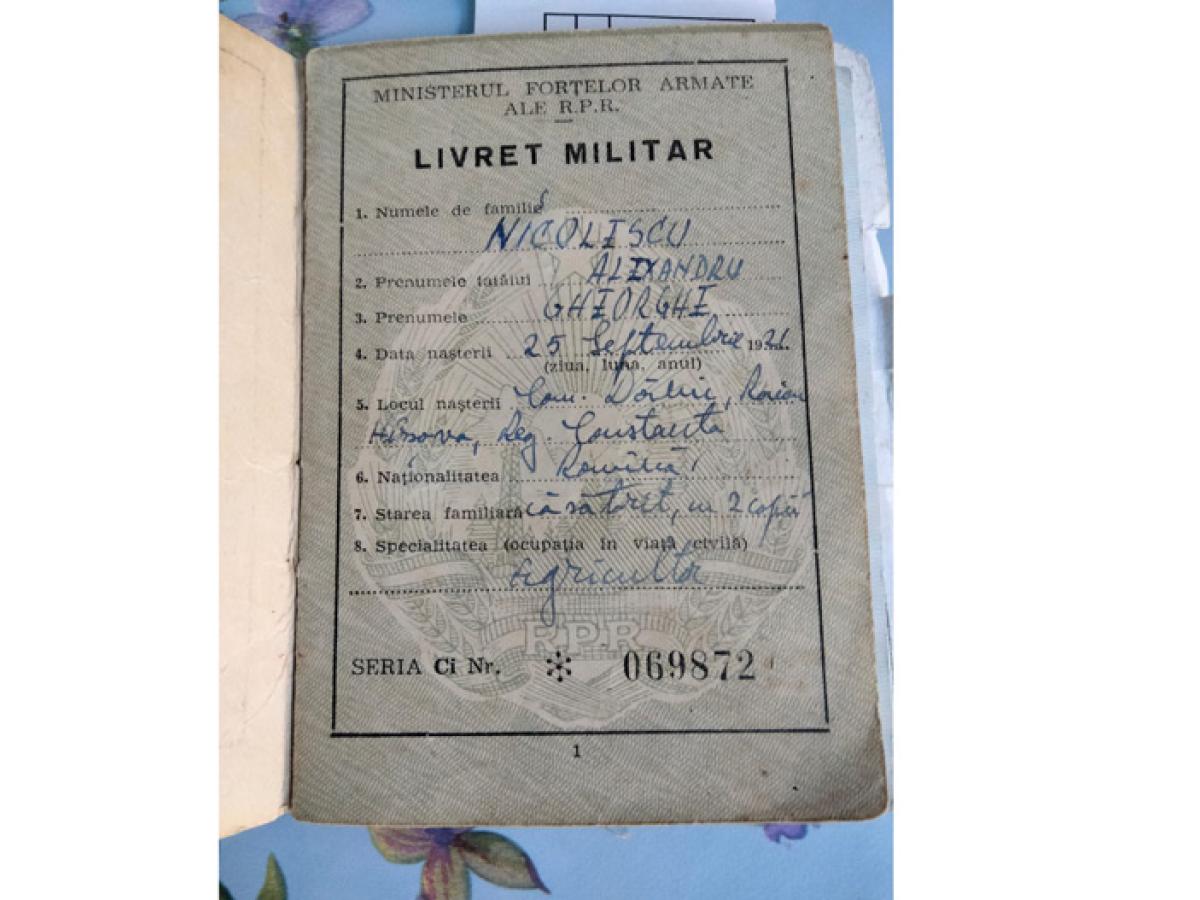 MINISTERUL FORȚELOR ARMATE
ALE R.P.R.
LIVRET MILITAR
1. Numele de familie
NICOLESCU
2. Prenumele tatălui ALEXANDRU
3. Prenumele GHEORGHE
4. Data nașterii 25 Septembrie 1921.
(ziua, luna, anul)
5. Locul nașterii Com.
Hîrșova, Reg. Constanta
6. Naționalitatea Română
7. Starea familiară căsătorit, cu 2 copii
8. Specialitatea (ocupația în viață civilă)
agricultor
RPR
SERIA Ci Nr. * 069872
1